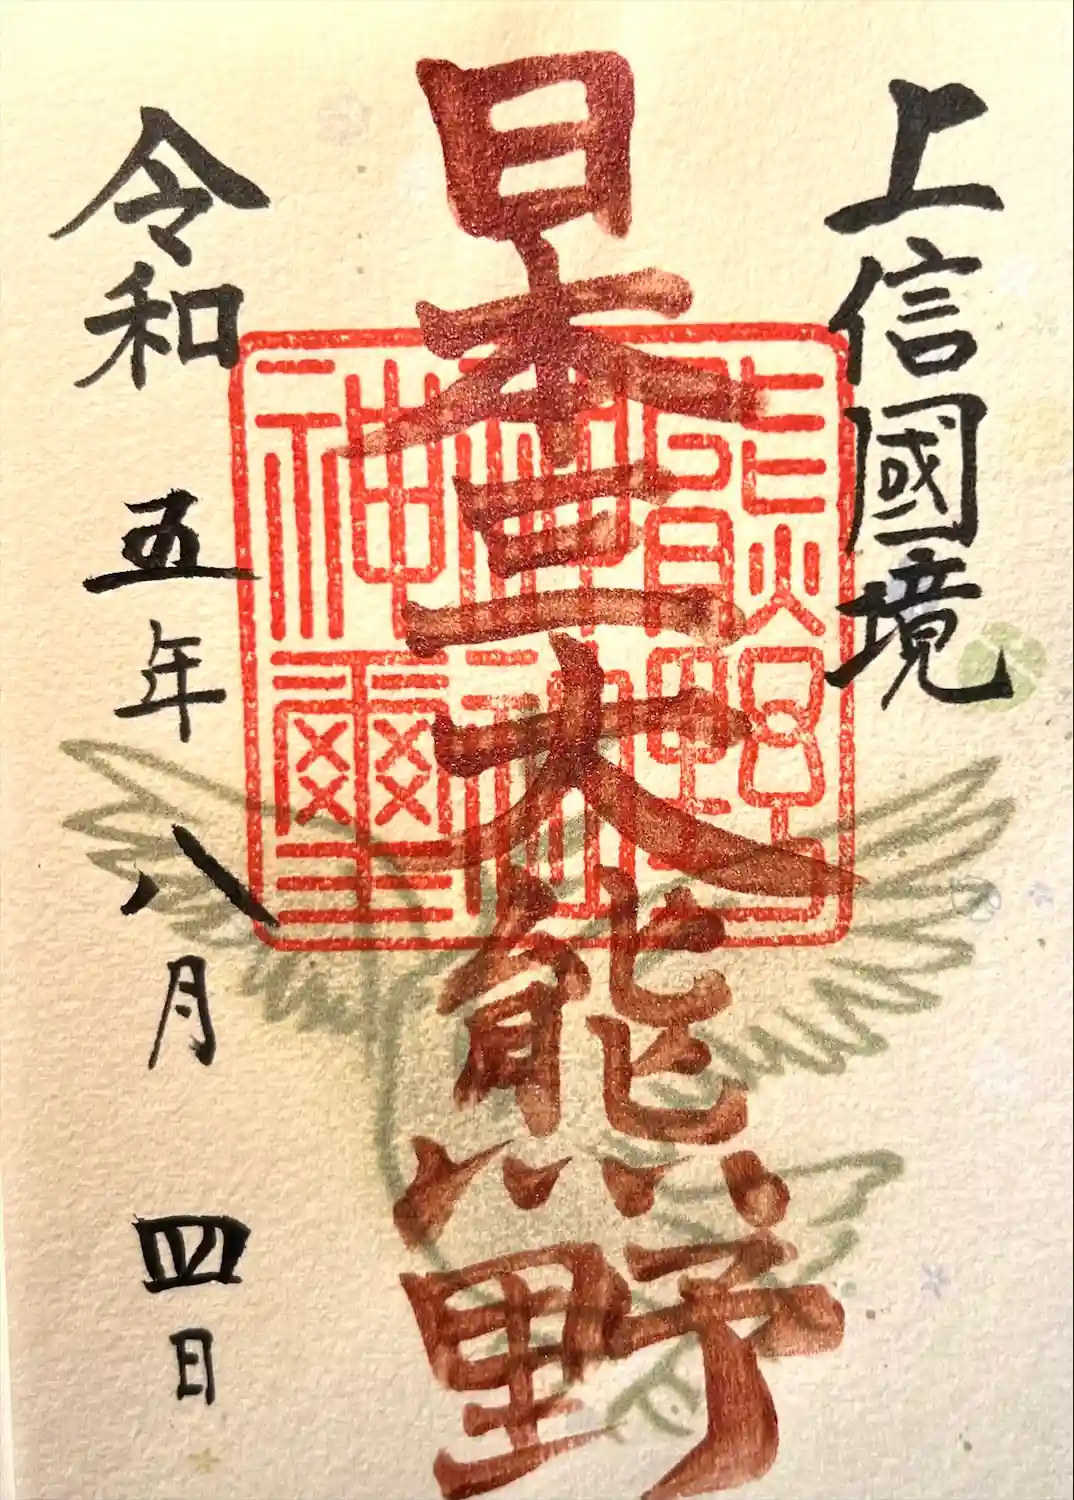 上信國境
日本三大熊野
令和五年八月四日
熊野
神社
神璽